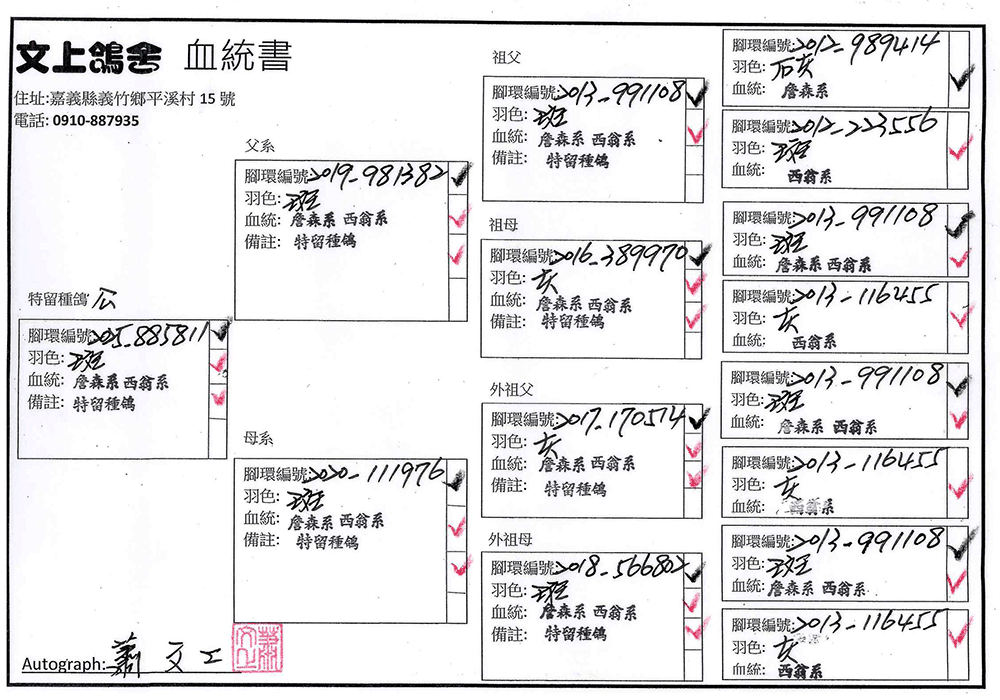 文上鴿舍 血統書
住址:嘉義縣義竹鄉平溪村 15 號
電話: 0910-887935
特留種鴿
腳環編號:2025-885811
羽色: 斑
血統: 詹森系 西翁系
備註: 特留種鴿
父系
腳環編號:2019-981382
羽色: 斑
血統: 詹森系 西翁系
備註: 特留種鴿
母系
腳環編號:2020-111976
羽色: 斑
血統: 詹森系 西翁系
備註: 特留種鴿
祖父
腳環編號:2013-991108
羽色: 斑
血統: 詹森系 西翁系
備註: 特留種鴿
祖母
腳環編號:2016-389970
羽色: 灰
血統: 詹森系 西翁系
備註: 特留種鴿
外祖父
腳環編號:2017-170514
羽色: 灰
血統: 詹森系 西翁系
備註: 特留種鴿
外祖母
腳環編號:2018-566802
羽色: 斑
血統: 詹森系 西翁系
備註: 特留種鴿
腳環編號:2012-989414
羽色: 石灰
血統: 詹森系
腳環編號:2012-223556
羽色: 斑
血統: 西翁系
腳環編號:2013-991108
羽色: 斑
血統: 詹森系 西翁系
腳環編號:2013-116455
羽色: 灰
血統: 西翁系
腳環編號:2013-991108
羽色: 斑
血統: 詹森系 西翁系
腳環編號:2013-116455
羽色: 灰
血統: 西翁系
腳環編號:2013-991108
羽色: 斑
血統: 詹森系 西翁系
腳環編號:2013-116455
羽色: 灰
血統: 西翁系
Autograph: 蕭文工